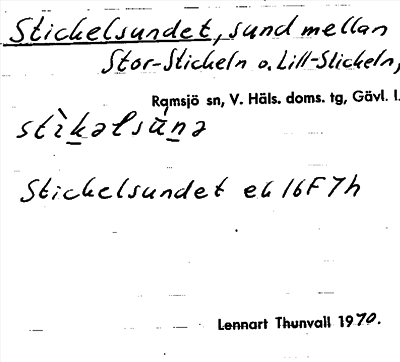 Stickelsundet, sund mellan
Stor-Stickeln o. Lill-Stickeln,
Ramsjö sn, V. Häls. doms. tg, Gävl. l.
stìkəlsùnə
Stickelsundet ek 16F7h
Lennart Thunvall 1970.